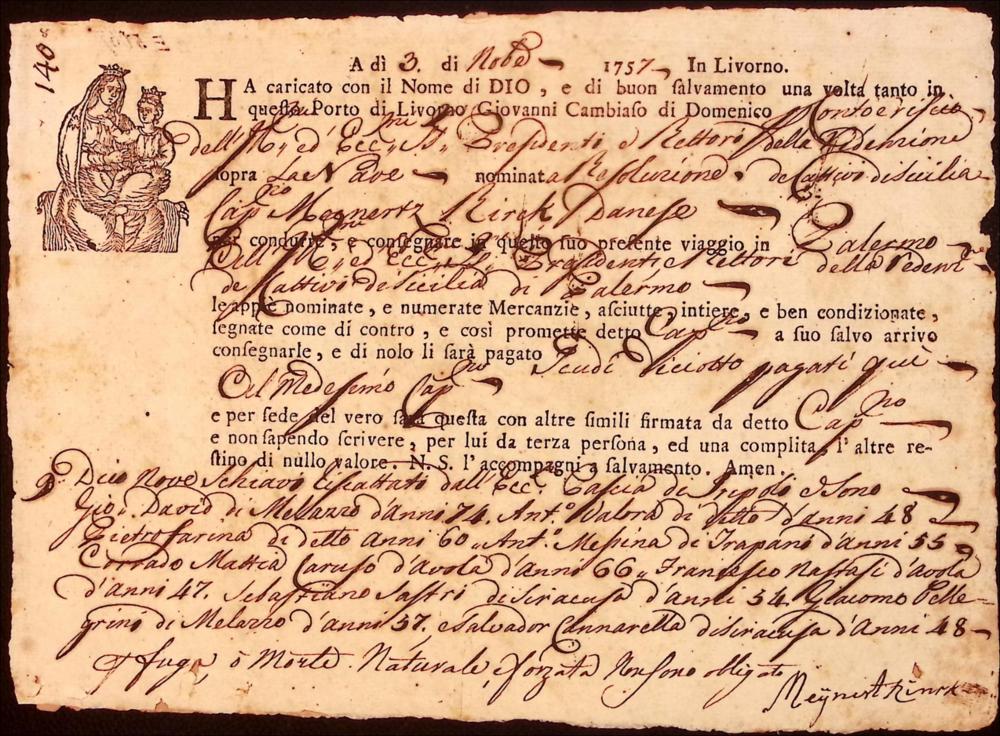 140
A dì 3. di Nobe 1757 In Livorno.
HA caricato con il Nome di DIO, e di buon ſalvamento una volta tanto in
queſto Porto di Livorno Giovanni Cambiaſo di Domenico
dell ed Ecc. Presidenti e Rettori della Redenzione
ſopra La Nave nominata Resoluzione. de Cattivi di Sicilia
Cap.no Meynertz Kirck Danese
per condurre, e conſegnare in queſto ſuo preſente viaggio in Palermo
ed Ecc. Presidenti e Rettori della Reden.ne
de Cattivi di Sicilia di Palermo
le appiè nominate, e numerate Mercanzie, aſciutte, intiere, e ben condizionate,
ſegnate come di contro, e così promette detto Cap.no a ſuo ſalvo arrivo
conſegnarle, e di nolo li ſarà pagato Scudi Diciotto pagati qui
al Medesimo Cap.no
e per fede del vero ſarà queſta con altre ſimili firmata da detto Cap.no
e non ſapendo ſcrivere, per lui da terza perſona, ed una complita, l'altre re-
ſtino di nullo valore. N. S. l'accompagni a ſalvamento. Amen.
Nove Schiavi riscattati dall' Ecc. Cascia di Tripoli e sono
Gio. David di Melazzo d'anni 74. Ant.o Valora di detto d'anni 48
Pietro Farina di detto anni 60 Ant.o Messina di Trapani d'anni 55
Corrado Mattia Caruso d'Avola d'anni 66 Francesco Nastasi d'Avola
d'anni 47. Sebastiano Sastri di Siracusa d'anni 54. Giacomo Pelle-
grini di Melazzo d'anni 57. e Salvador Cannarella di Siracusa d'Anni 48
fuga, ò Morte Naturale, e forzata Non sono obligato
Meÿnert Kirck